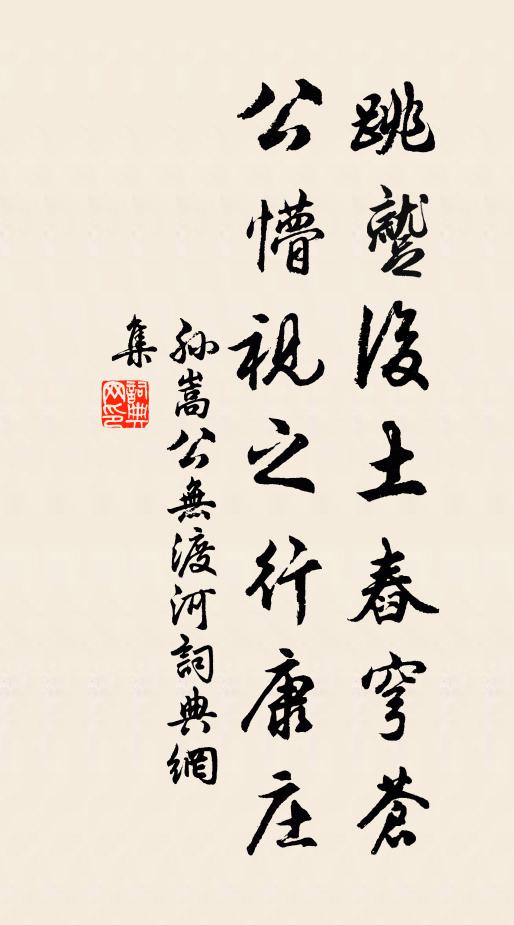 跳蹙後土舂穹蒼
公懵視之行康庄
孫嵩公無渡河詞典網
集
詞典
网印